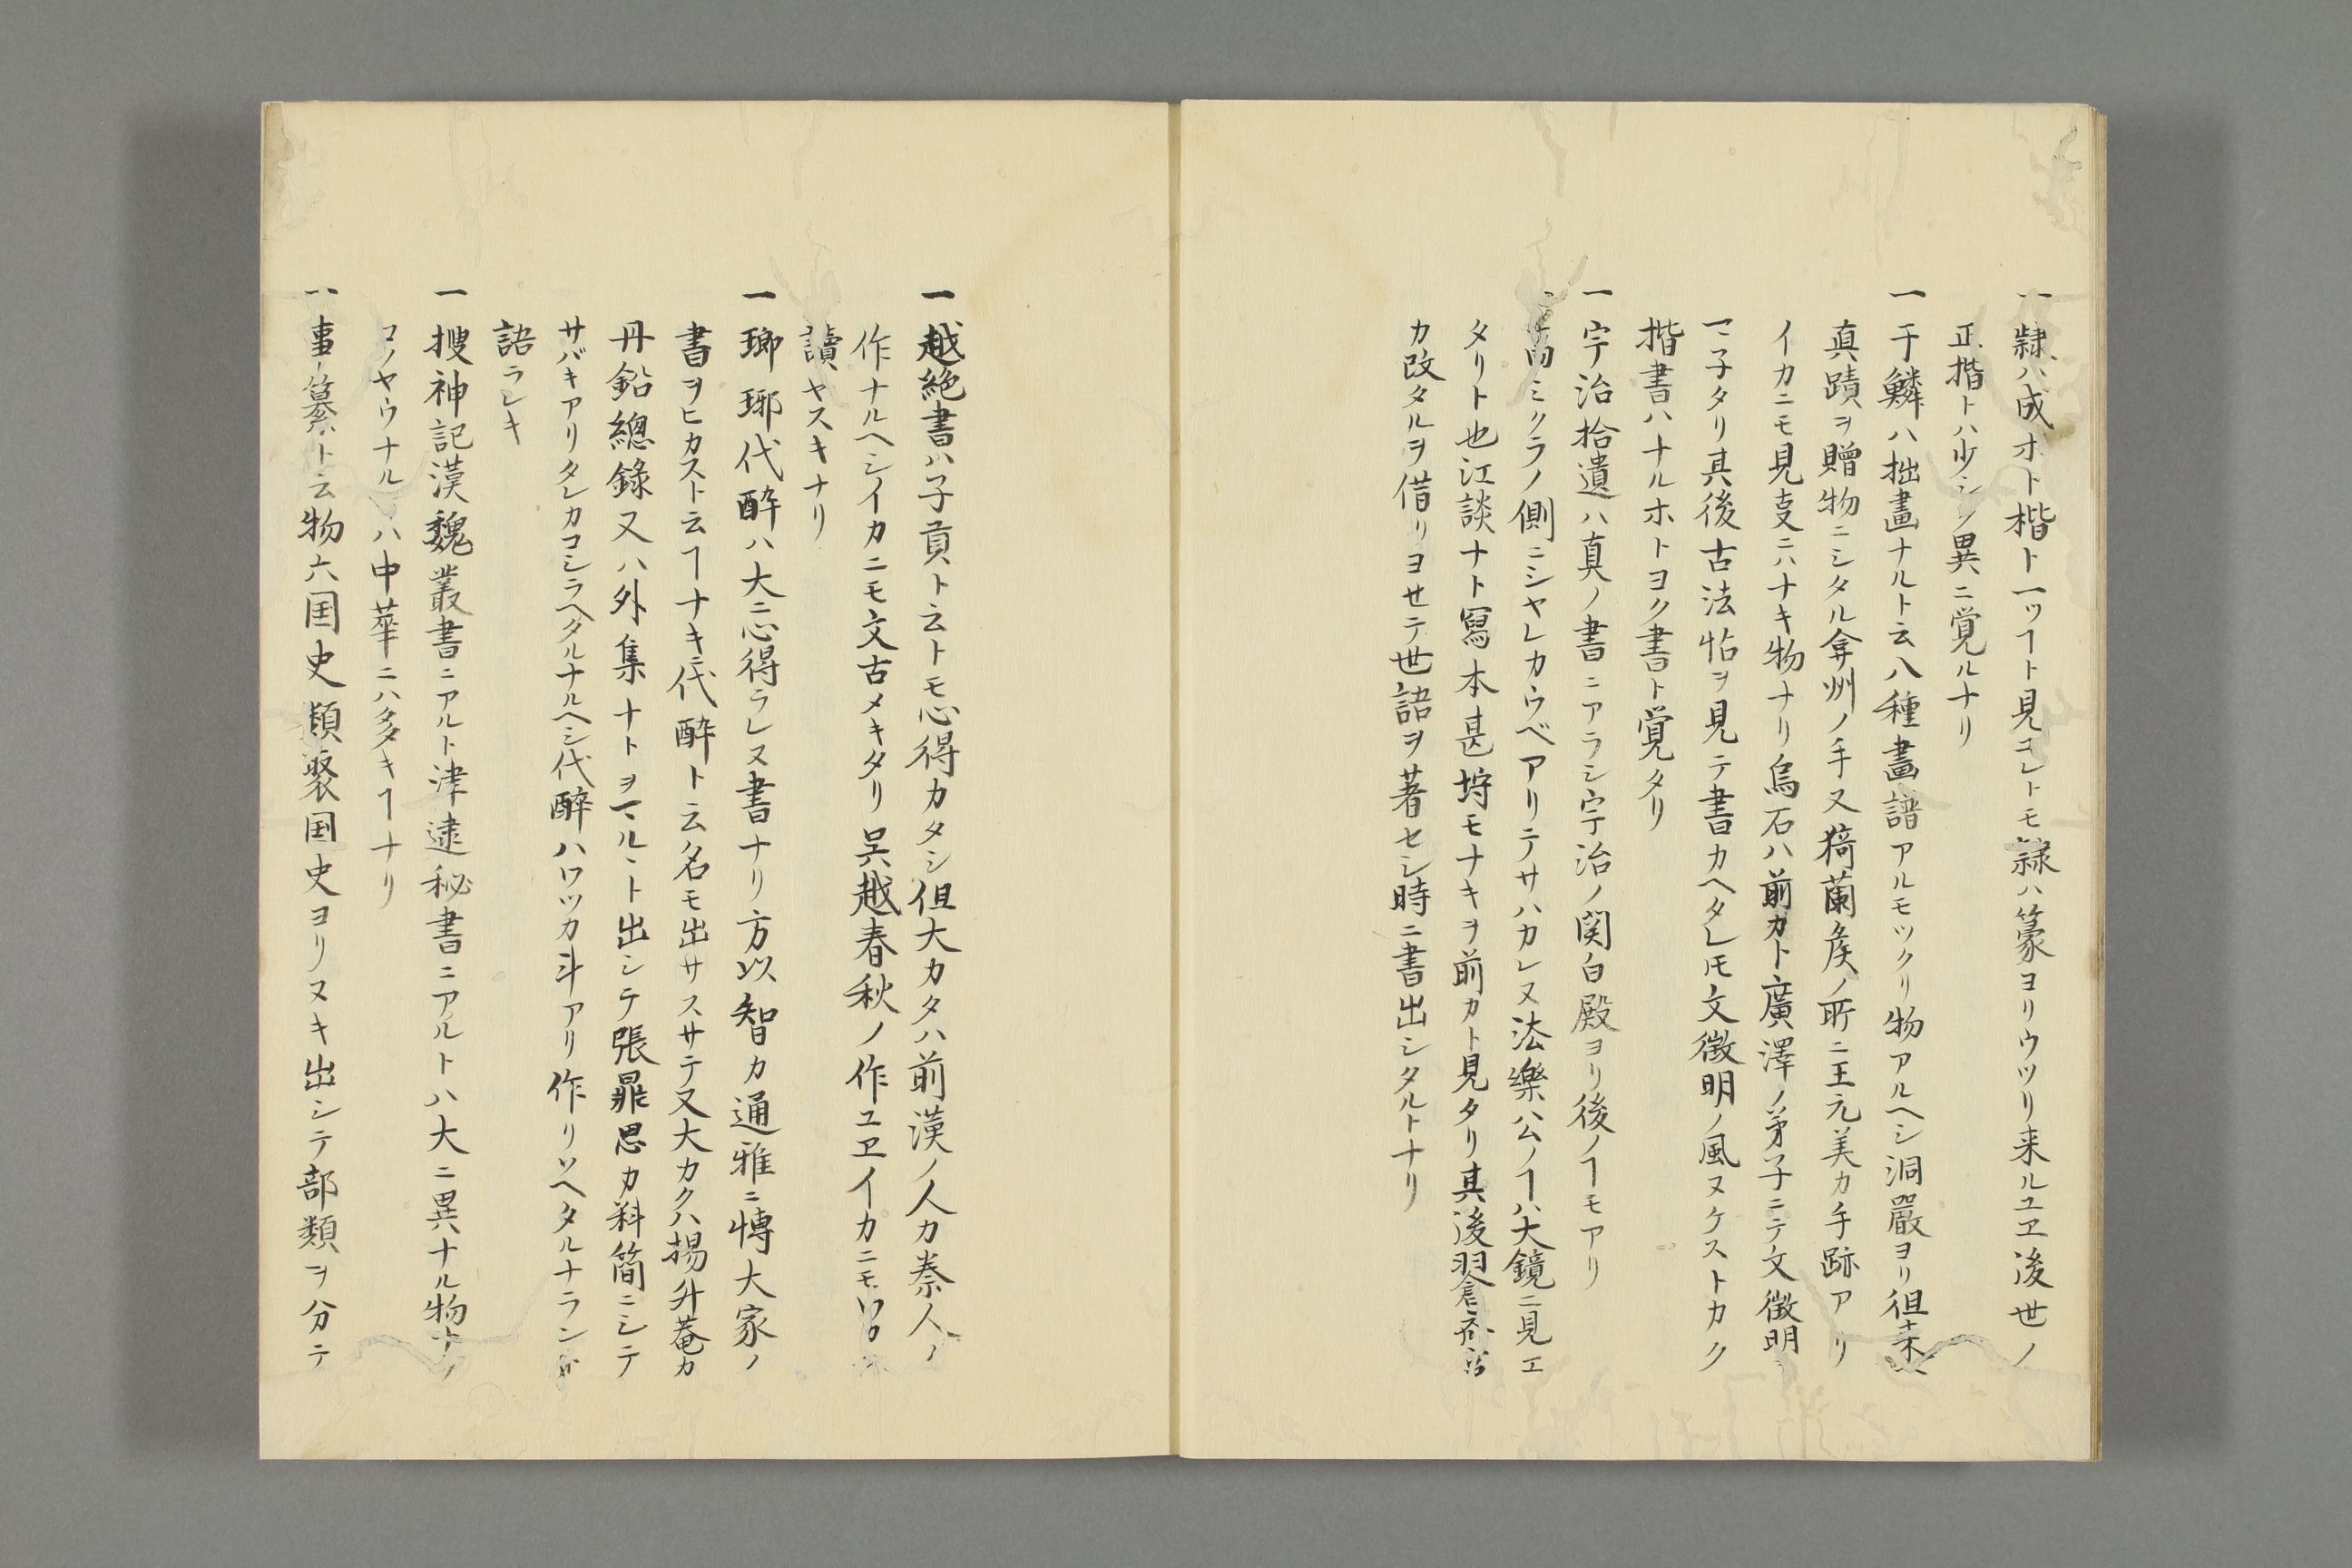 一隷ハ成ホト楷ト一ツヿト見ユレトモ隷ハ篆ヨリウツリ来ルユヱ後世ノ
正楷トハ少シノ異ニ覚ルナリ
一于鱗ハ拙畫ナルト云八種畫譜アルモツクリ物アルヘシ洞嚴ヨリ徂来ヘ
真蹟ヲ贈物ニシタル弇州ノ手又猗蘭矦ノ所ニ王元美カ手跡アリ
イカニモ見叓ニハナキ物ナリ烏石ハ前カト廣澤ノ㐧子ニテ文徴明
マ子タリ其後古法帖ヲ見テ書カヘタレ𪜈文徴明ノ風ヌケストカク
楷書ハナルホトヨク書ト覚タリ
一宇治拾遺ハ真ノ書ニアラシ宇治ノ関白殿ヨリ後ノヿモアリ
ミクラノ側ニシヤレカウベアリテサハカレヌ法樂公ノヿハ大鏡ニ見エ
タリト也江談ナト冩本甚埒モナキヲ前カト見タリ其後
カ改タルヲ借リヨセテ世語ヲ著セシ時ニ書出シタルトナリ
一越絶書ハ子貢ト云トモ心得カタシ但大カタハ前漢ノ人カ秦人ノ
作ナルヘシイカニモ文古メキタリ呉越春秋ノ作ユヱイカニモ
讀ヤスキナリ
一瑯琊代酔ハ大ニ心得ラレヌ書ナリ方以智カ通雅ニ博大家ノ
書ヲヒカスト云ヿナキニ代酔ト云名モ出サスサテ又大カクハ揚升菴カ
丹鉛總錄又ハ外集ナトヲマルヽト出シテ張鼎思カ料簡ニシテ
サバキアリタレカコシラヘタルナルヘシ代酔ハワツカ斗アリ作リソヘタルナラン
語ラレキ
一搜神記漢魏叢書ニアルト津逮秘書ニアルトハ大ニ異ナル物ナリ
コノヤウナルハ中華ニハ多キヿナリ
一事纂ト云物六国史類聚国史ヨリヌキ出シテ部類ヲ分テ